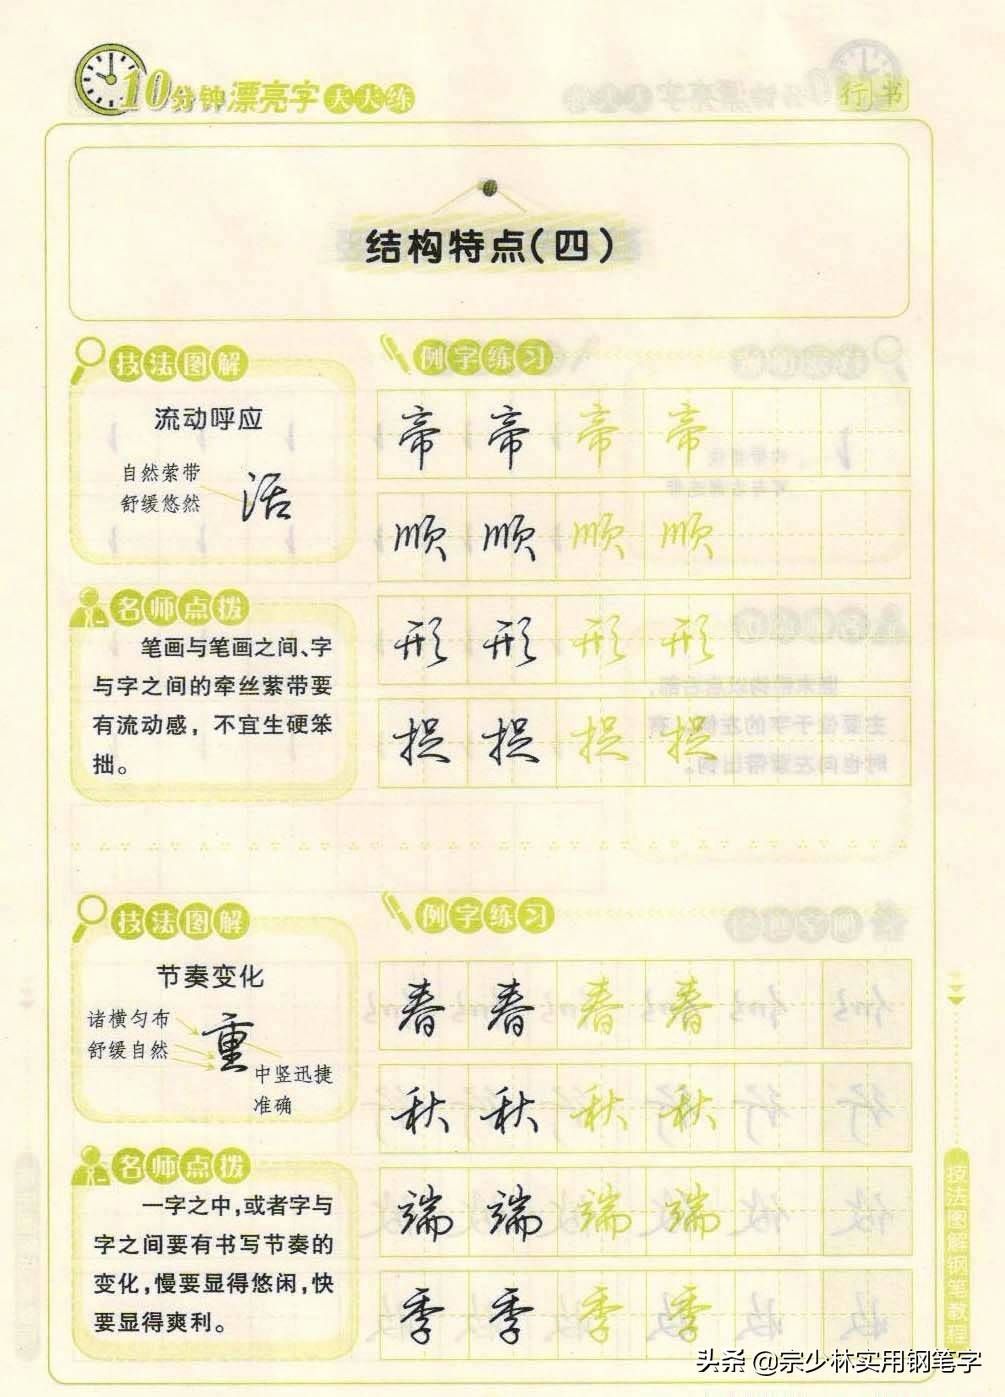 10分钟漂亮字天天练
行书
结构特点(四)
技法图解
流动呼应
自然萦带
舒缓悠然
活
例字练习
帝 帝 帝 帝
顺 顺 顺 顺
形 形 形 形
捉 捉 捉 捉
名师点拨
笔画与笔画之间、字
与字之间的牵丝萦带要
有流动感，不宜生硬笨
拙。
技法图解
节奏变化
诸横匀布
舒缓自然
重
中竖迅捷
准确
例字练习
春 春 春 春
秋 秋 秋 秋
端 端 端 端
季 季 季 季
名师点拨
一字之中，或者字与
字之间要有书写节奏的
变化，慢要显得悠闲，快
要显得爽利。
技法图解钢笔教程
头条 @宗少林实用钢笔字